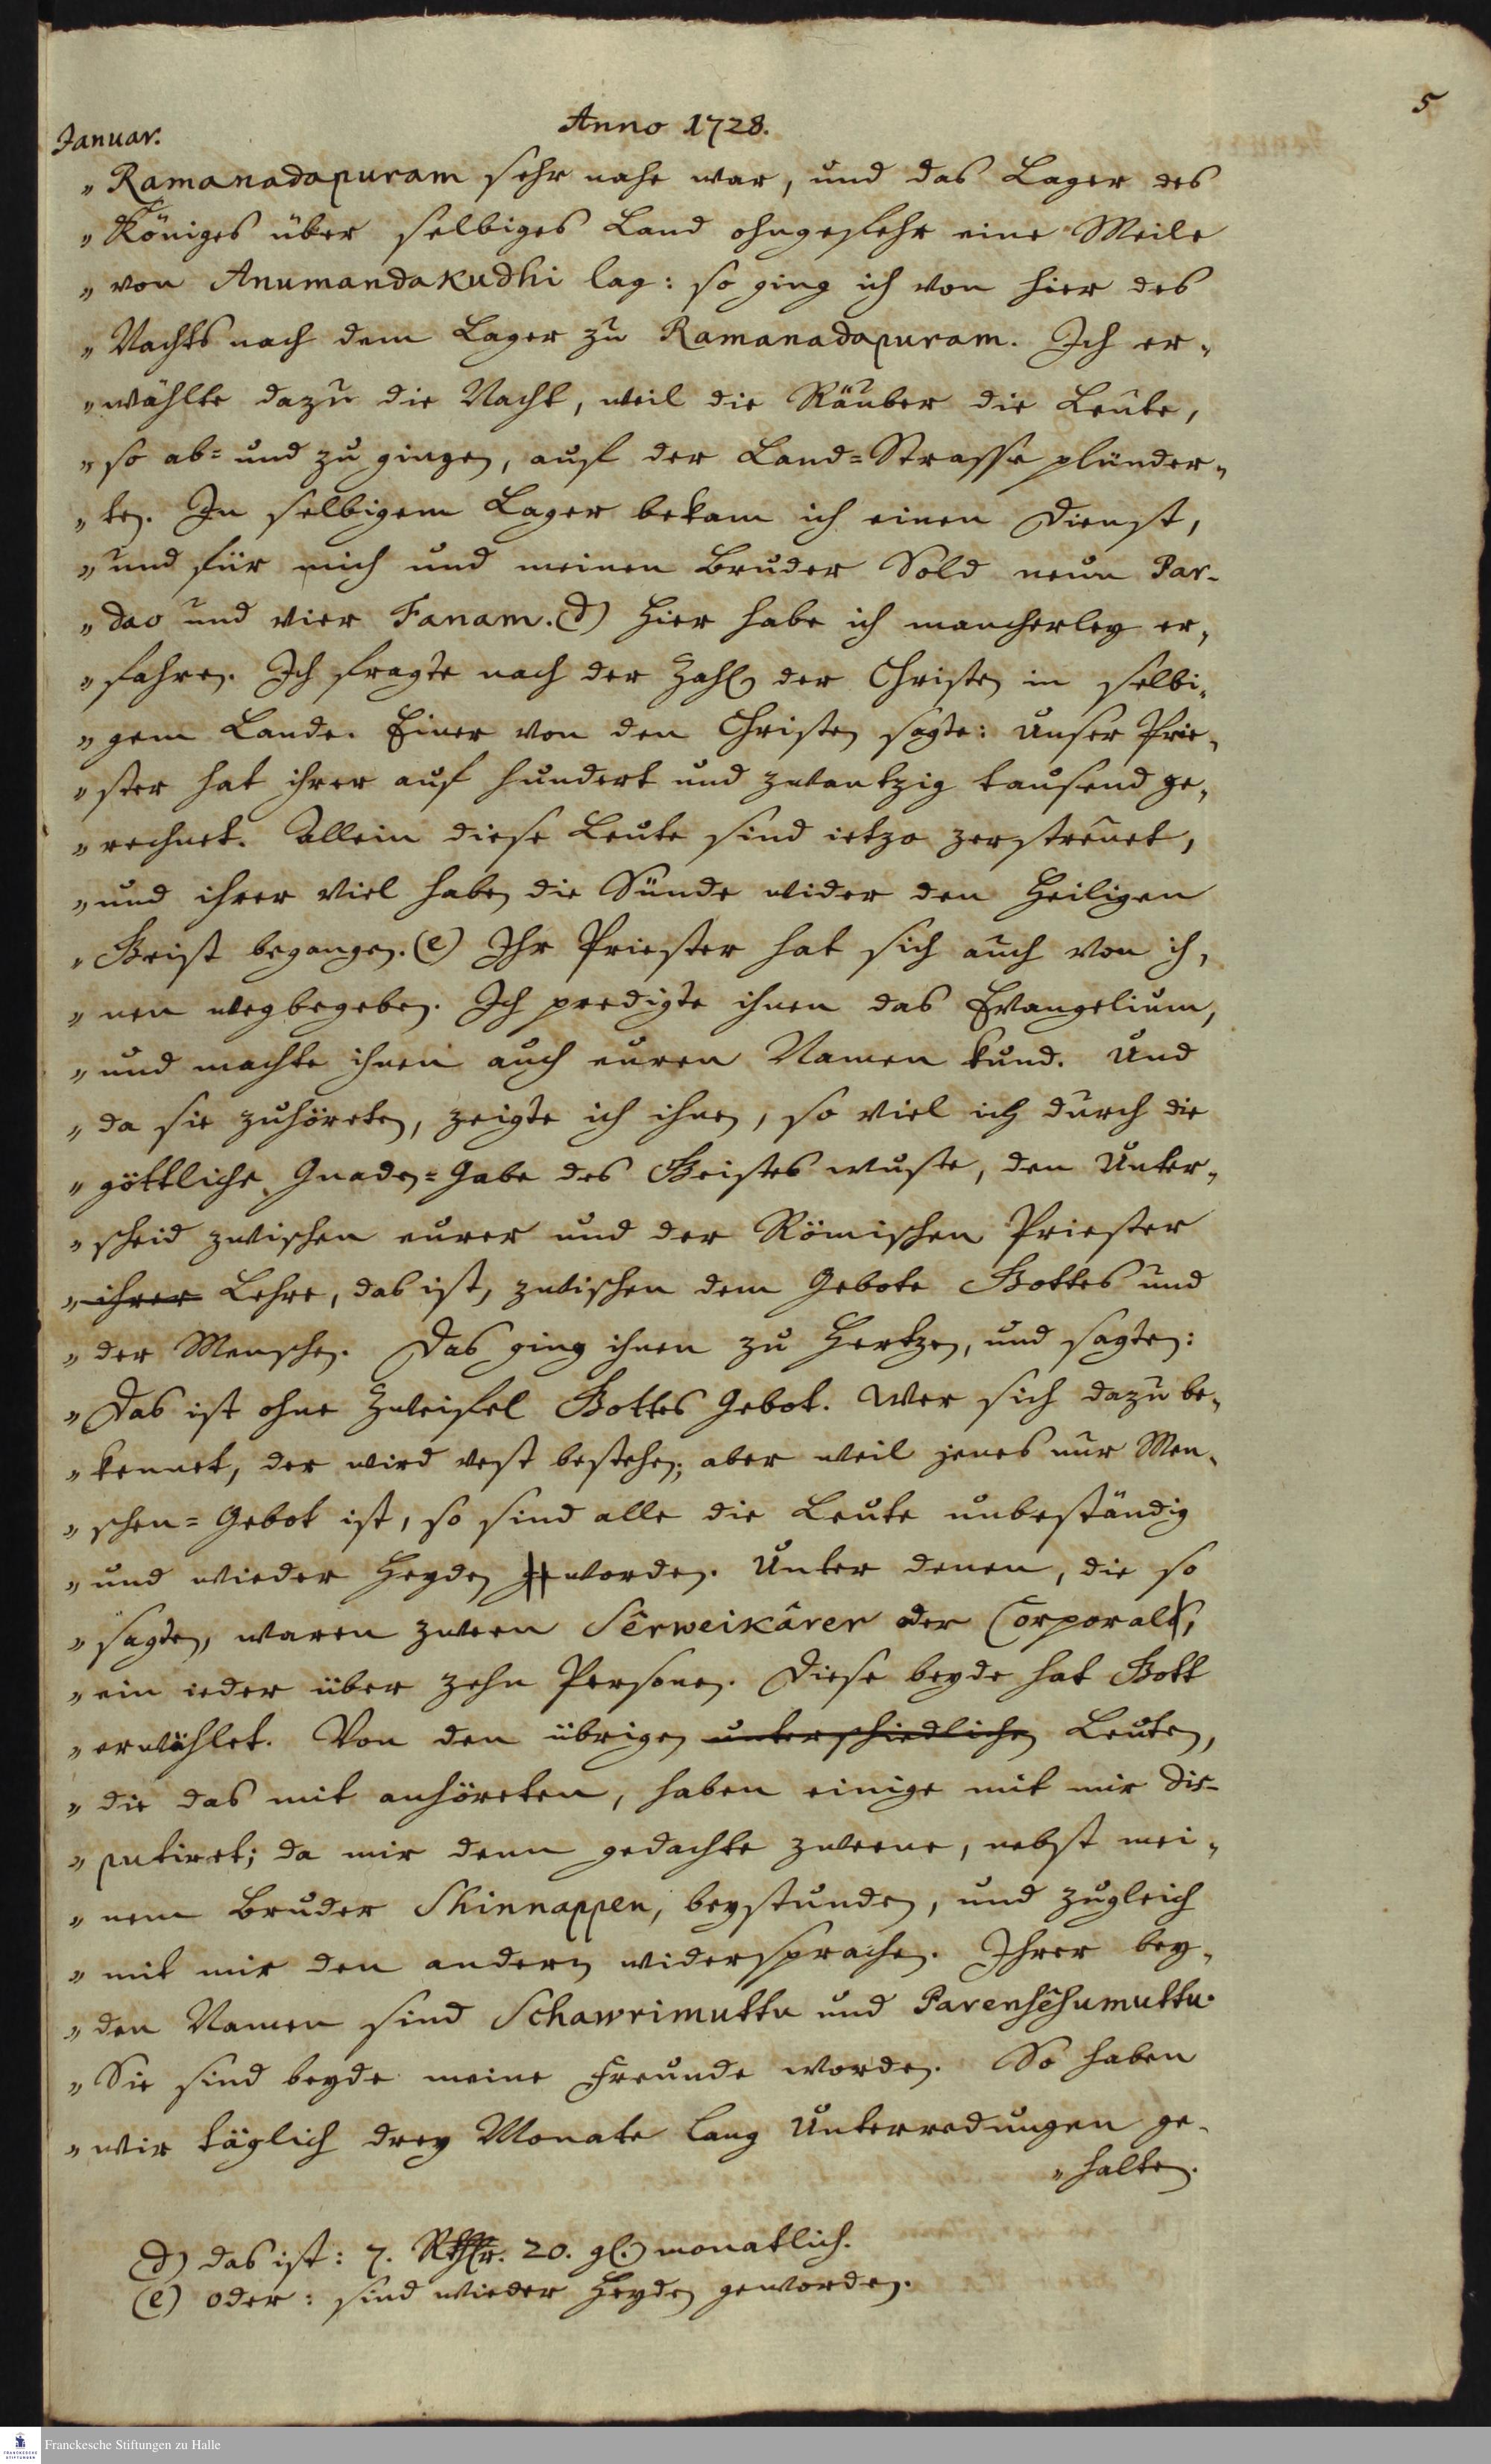 5
Januar.
Anno 1728.
„ Ramanadapuram sehr nahe war, und das Lager des
„ Königes über selbiges Land ohngefehr eine Meile
„ von Anumandakudhi lag: so ging ich von hier des
„ Nachts nach dem Lager zu Ramanadapuram. Ich er-
„ wählte dazu die Nacht, weil die Räuber die Leute,
„ so ab- und zu gingen, auf der Land-Strasse plünder-
„ ten. In selbigem Lager bekam ich einen Dienst,
„ und für mich und meinen Bruder Sold neun Par-
„ dao und vier Fanam. (d) Hier habe ich mancherley er-
„ fahren. Ich fragte nach der Zahl der Christen in selbi-
„ gem Lande. Einer von den Christen sagte: Unser Prie-
„ ster hat ihrer auf hundert und zwantzig tausend ge-
„ rechnet. Allein diese Leute sind ietzo zerstreuet,
„ und ihrer viel haben die Sünde wider den Heiligen
„ Geist begangen. (e) Ihr Priester hat sich auch von ih-
„ nen wegbegeben. Ich predigte ihnen das Evangelium,
„ und machte ihnen auch euren Namen kund. Und
„ da sie zuhöreten, zeigte ich ihnen, so viel ich durch die
„ göttliche Gnaden-Gabe des Geistes wuste, den Unter-
„ scheid zwischen eurer und der Römischen Priester
„ ihrer Lehre, das ist, zwischen dem Gebote Gottes und
„ der Menschen. Das ging ihnen zu Hertzen, und sagten:
„ Das ist ohne Zweifel Gottes Gebot. Wer sich dazu be-
„ kennet, der wird vest bestehen; aber weil jenes nur Men-
„ schen-Gebot ist, so sind alle die Leute unbeständig
„ und wieder Heyden geworden. Unter denen, die so
„ sagten, waren zween Sêrweikârer oder Corporals,
„ ein ieder über zehn Personen. Diese beyde hat Gott
„ erwählet. Von den übrigen unterschiedlichen Leuten,
„ die das mit anhöreten, haben einige mit mir dis-
„ putiret; da mir denn gedachte zweene, nebst mei-
„ nem Bruder Shinnappen, beystunden, und zugleich
„ mit mir den andern widersprachen. Ihrer bey-
„ den Namen sind Schawrimuttu und Parenshêshumuttu.
„ Sie sind beyde meine Freunde worden. So haben
„ wir täglich drey Monate lang Unterredungen ge-
„ halten.
(d) das ist: 7. Rthlr. 20. gl. monatlich.
(e) oder: sind wieder Heyden geworden.
Franckesche Stiftungen zu Halle